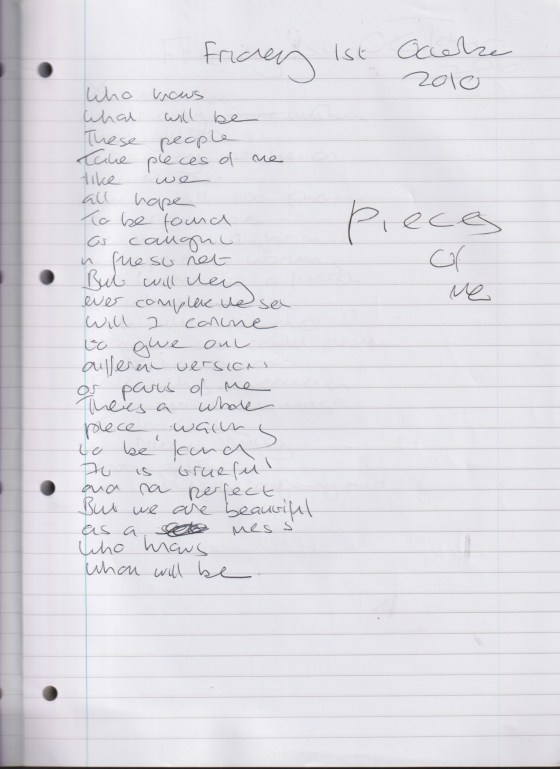 Friday 1st October
2010
Who knows
what will be
These people
take pieces of me
like we
all hope
To be found
or caught
n these net
But will they
ever complete the set
Will I continue
to give out
different versions
or parts of me
Theres a whole
piece waiting
to be found
It is
and not perfect
But we are beautiful
as a mess
Who knows
what will be.
Pieces
of
me